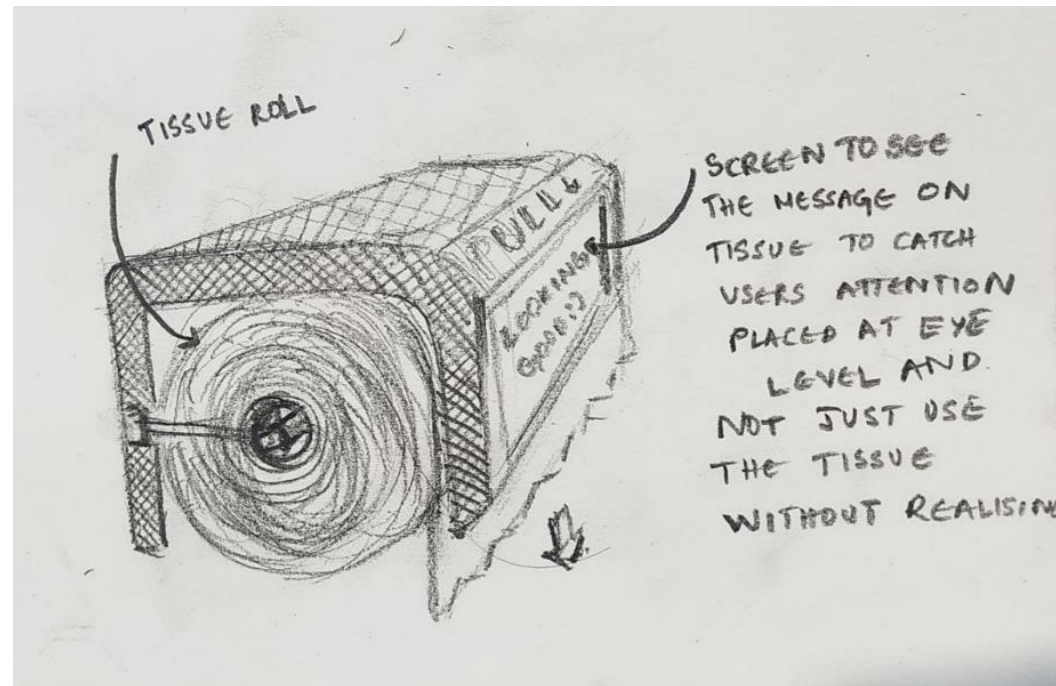 TISSUE ROLL
PULL
LOOKING
GOOD :)
SCREEN TO SEE
THE MESSAGE ON
TISSUE TO CATCH
USERS ATTENTION
PLACED AT EYE
LEVEL AND
NOT JUST USE
THE TISSUE
WITHOUT REALISING